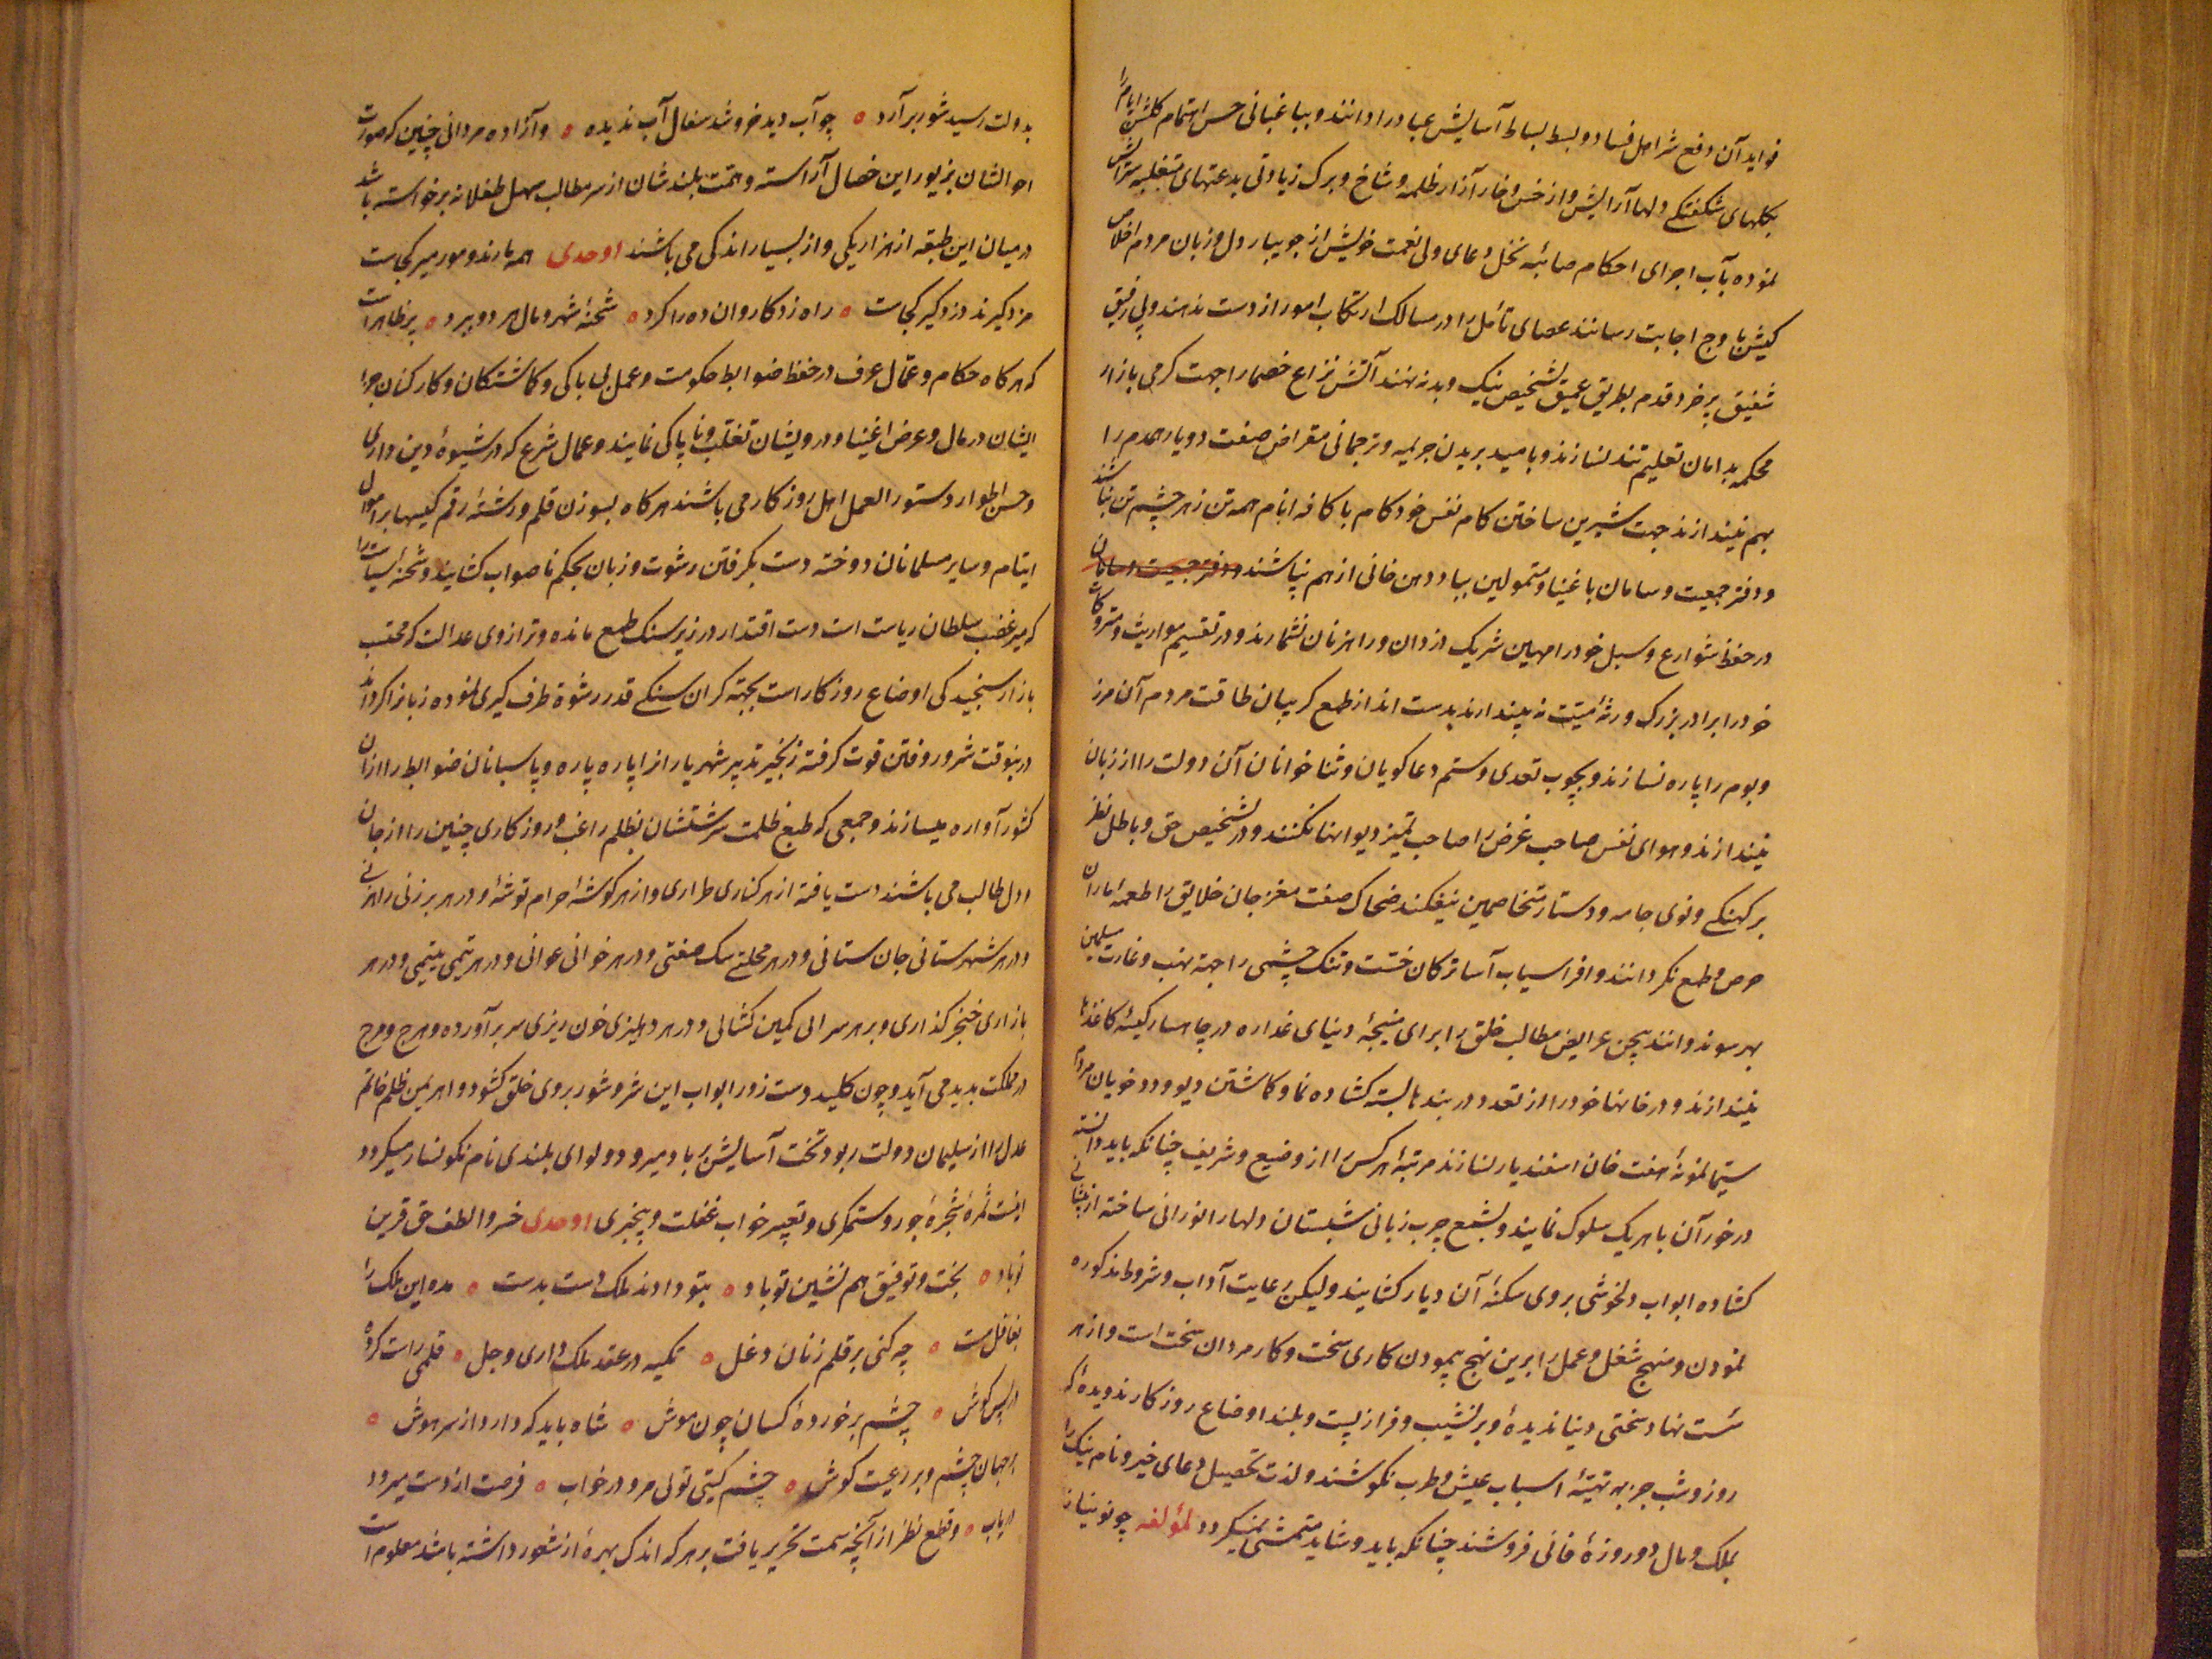 فواید آن دفع شر اهل فساد و بسط بساط آسایش عباد را دانند و بباغبانی حسن اهتمام گلشن ایام را
بگلهای شکفتگی دلها آرایش و از خس و خار آزار ظلمه و شاخ و برگ زیادتی بدعتهای متغلبه
نموده بآب اجرای احکام صائبه نخل دعای ولی نعمت خویش از جویبار دل و زبان مردم اخلاص
کیش باوج اجابت رسانند عصای تأمل را در مسالک ارتکاب امور از دست ندهند و بی رفیق
شفیق پیر خرد قدم بطریق عمیق تشخیص نیک و بد ننهند آتش نزاع خصما را جهت گرمی بازار
محکمه بدامان تعلیم تند نسازند و بامید بریدن جریمه و ترجمانی مقراض صفت دو یار همدم را
بهم نیندازند جهت شیرین ساختن کام نفس خودکام با کافه انام همه تن زهر چشم تن نباشند
و دفتر جمعیت و سامان باغنیا و متمولین بباد دهن خانی از هم نپاشند
در حفظ شوارع و سبل خود را مهین شریک دزدان و راهزنان نشمارند و در تقسیم مواریث و متروکات
خود را برادر بزرگ ورثهٔ میت نه پندارند بدست انداز طمع گریبان طاقت مردم آن مرز
و بوم را پاره نسازند و بچوب تعدی و ستم دعاگویان و ثناخوانان آن دولت را از زبان
نیندازند و هوای نفس صاحب غرض را صاحب تمیز دیوانها نکنند و در تشخیص حق و باطل نظر
بر کهنگی و نوی جامه و دستار متخاصمین نیفکنند ضحاک صفت مغز جان خلایق را طعمه ماران
حرص و طمع نگردانند و افراسیاب آسا ترکان خست و تنگ چشمی را جهة نهب و غارت مسلمین
بهر سو ندوانند بیچن عرایض مطالب خلق را برای منیجهٔ دنیای غداره در چاهسار کیسهٔ کاغذها
نیندازند و در خانها خود را از تعدد در بندها بسته کشاده نما و گماشتن دیو و دد خویان مردم
سیما نمونهٔ هفت خان اسفندیار نسازند مرتبهٔ هر کس را از وضیع و شریف چنانکه باید دانسته
در خور آن با هر یک سلوک نمایند و بشمع چرب زبانی شبستان دلها را نورانی ساخته از پیشانی
کشاده ابواب دلخوشی بروی سکنهٔ آن دیار کشایند ولیکن رعایت آداب و شروط مذکوره
نمودن و منهج شغل و عمل را برین نهج پیمودن کاری سخت و کار مردان سخت است و از هر
سست نهاد سختی دنیا ندیدهٔ و بر نشیب و فراز پست و بلند اوضاع روزگار ندویدهٔ که
روز و شب جز به تهیئهٔ اسباب عیش و طرب نکوشند و لذت تحصیل دعای خیر و نام نیک را
بملک و مال دو روزهٔ فانی فروشند چنانکه باید و شاید متمشی نمیگردد لمؤلفه چو نوبنیاد
بدولت رسید شور برآرد ه چو آب دید خروشد سفال آب ندیده ه و آزاده مردانی چنین که صورت
احوالشان بزیور این خصال آراسته و همت بلندشان از سر مطالب سهل طفلانه برخواسته باشد
در میان این طبقه از هزار یکی و از بسیار اندکی می باشند اوحدی همه مارند و مور میر کجاست
مزدگیرند دزدگیر کجاست ه راه زد کاروان ده را کرد ه شحنهٔ شهر و مال هر دو ببرد ه پر ظاهر است
که هر گاه حکام و عمال عرف در حفظ ضوابط حکومت و عمل بی باکی و گماشتگان و کارکنان و اجرا
ایشان در مال و عرض اغنیا و درویشان تغلب و ناپاکی نمایند و عمال شرع که در شیوهٔ دین داری
و حسن اطوار دستور العمل اهل روزگار می باشند هر گاه بسوزن قلم و رشتهٔ رقم کیسها بر اموال
ایتام و سایر مسلمانان دوخته دست بگرفتن رشوت و زبان بحکم ناصواب کشایند و شحنهٔ سیاست را
که میر غضب سلطان ریاست است دست اقتدار در زیر سنگ طمع مانده و ترازوی عدالت که محتسب
بازار سنجیدگی اوضاع روزگار است بجهة گران سنگی قدر رشوة طرف گیری نموده زبانرا گرداند
درینوقت شرور و فتن قوت گرفته زنجیر تدبیر شهریار انرا پاره پاره و پاسبانان ضوابط را از آن
کشور آواره میسازند و جمعی که طبع ظلمت سرشتشان بظلم راغب و روزگاری چنین را از جان
و دل طالب می باشند دست یافته از هر کناری طراری و از هر گوشهٔ حرام توشهٔ و در هر برزنی راهزنی
و در هر شهرستانی جان ستانی و در هر محلتی سگ صفتی و در هر خوانی عوانی و در هر تیمی یتیمی و در هر
بازاری خنجر گذاری و بر هر سرائی کمین کشائی و در هر دهلیزی خون ریزی سر برآورده و هرج و مرج
در مملکت بدید می آید و چون کلید دست زور ابواب این شر و شور بروی خلق کشود و اهریمن ظلم خاتم
عدل را از سلیمان دولت ربود تخت آسایش بر باد میرود و لوای بلندی نام نگونسار میگردد
اینست ثمرهٔ شجرهٔ جور و ستمگری و تعبیر خواب غفلت و بیخبری اوحدی خسروا لطف حق قرین
تو باد ه بخت و توفیق هم نشین تو باد ه بتو دادند ملک دست بدست ه مده این ملک را
بغافل مست ه چه کنی بر قلم زنان دغل ه تکیه در عقد ملک داری و حل ه قلمی راست کرده
در پس گوش ه چشم بر خوردهٔ کسان چون موش ه شاه باید که دارد از سر هوش ه
بر جهان چشم و بر رعیت گوش ه چشم گیتی توئی مرو در خواب ه فرصت از دست میرود
دریاب ه و قطع نظر از آنچه سمت تحریر یافت بر هر که اندک بهرهٔ از شعور داشته باشد معلوم است